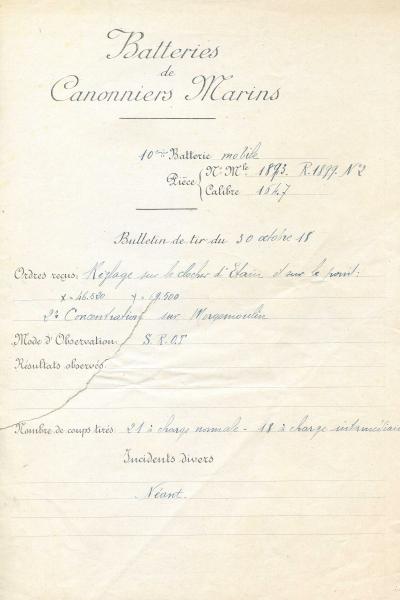 Batteries
de
Canonniers Marins
10ème Batterie mobile
Pièce { N: Mle 1893. R. 1897. No 2
Calibre 164.7
Bulletin de tir du 30 octobre 18
Ordres reçus: Réglage sur le clocher d'Etain et sur le point:
x = 46.520 y = 19.500
2o Concentration sur Morgemoulin
Mode d'Observation: S. R. O. T
Résultats observés
Nombre de coups tirés 21 à charge normale - 18 à charge intermédiaire
Incidents divers
Néant.